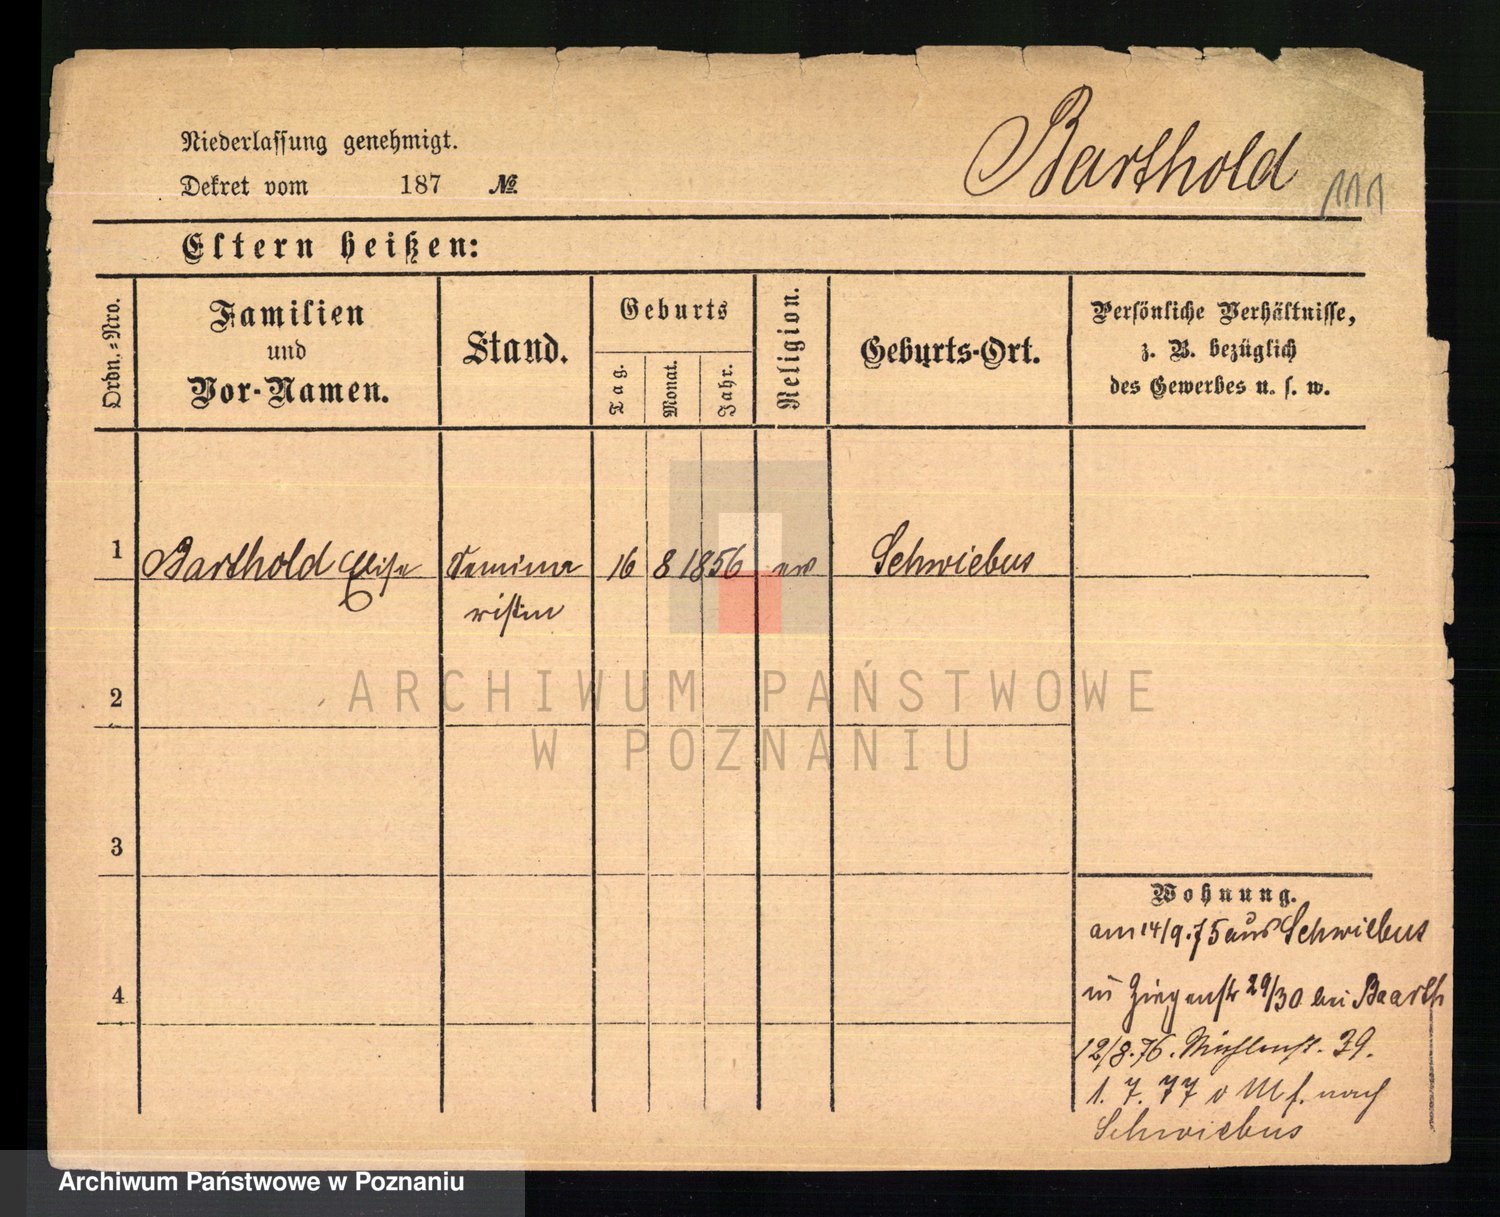 Niederlassung genehmigt.
Dekret vom 187 №
Barthold
Eltern heißen:
Ordn.-Nro.
Familien
und
Vor-Namen.
Stand.
Geburts
Tag.
Monat.
Jahr.
Religion.
Geburts-Ort.
Persönliche Verhältnisse,
z. B. bezüglich
des Gewerbes u. s. w.
1 Barthold Elise Semina 16 8 1856 ev Schwiebus
ristin
2
ARCHIWUM PAŃSTWOWE
W POZNANIU
3
Wohnung.
am 14/9.75 aus Schwiebus
4
in Ziegenstr 29/30 bei Baarth
12/8.76. Mühlenst. 39.
1. 7. 77 nach
Schwiebus
Archiwum Państwowe w Poznaniu